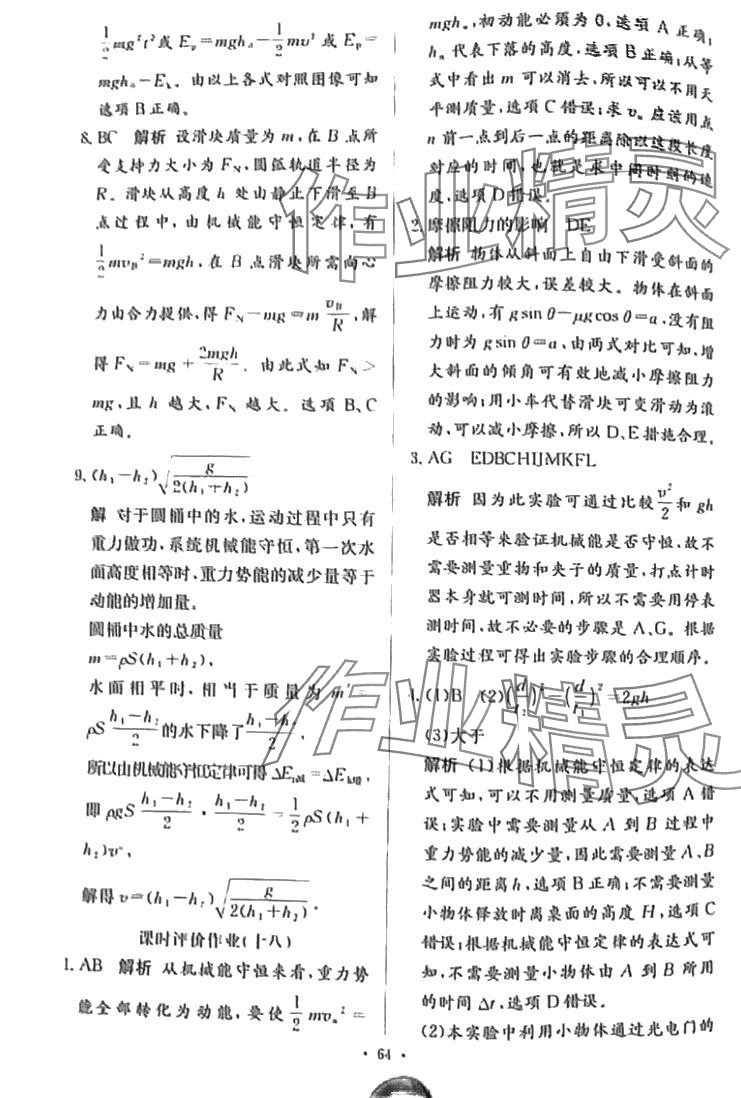 $\frac{1}{2}mg^2t^2$或 $E_p=mgh_n-\frac{1}{2}mv^2$ 或 $E_p=$
$mgh_n-E_k$。由以上各式对照图像可知
选项B正确。
8. BC 解析 设滑块质量为 m,在 B 点所
受支持力大小为 $F_N$,圆弧轨道半径为
R。滑块从高度 h 处由静止下滑至B
点过程中,由机械能守恒定律,有
$\frac{1}{2}mv_B^2=mgh$,在 B 点滑块所需向心
力由合力提供,得 $F_N-mg=m\frac{v_B^2}{R}$,解
得 $F_N=mg+\frac{2mgh}{R}$。由此式知 $F_N>$
mg,且 h 越大,$F_N$ 越大。选项 B、C
正确。
9. $(h_1-h_2)\sqrt{\frac{g}{2(h_1+h_2)}}$
解 对于圆桶中的水,运动过程中只有
重力做功,系统机械能守恒,第一次水
面高度相等时,重力势能的减少量等于
动能的增加量。
圆桶中水的总质量
$m=\rho S(h_1+h_2)$,
水面相平时,相当于质量为 $m'=$
$\rho S\frac{h_1-h_2}{2}$的水下降了$\frac{h_1-h_2}{2}$,
所以由机械能守恒定律可得 $\Delta E_{p减}=\Delta E_{k增}$,
即 $\rho gS\frac{h_1-h_2}{2}\cdot\frac{h_1-h_2}{2}=\frac{1}{2}\rho S(h_1+$
$h_2)v^2$,
解得 $v=(h_1-h_2)\sqrt{\frac{g}{2(h_1+h_2)}}$。
课时评价作业(十八)
1. AB 解析 从机械能守恒来看,重力势
能全部转化为动能,要使 $\frac{1}{2}mv_n^2=$
$mgh_n$,初动能必须为 0,选项 A 正确;
$h_n$ 代表下落的高度,选项 B正确;从等
式中看出 m 可以消去,所以可以不用天
平测质量,选项 C 错误;求 $v_n$ 应该用点
n 前一点到后一点的距离除以这段长度
对应的时间,也就是求中间时刻的速
度,选项 D 错误。
2. 摩擦阻力的影响 DE
解析 物体从斜面上自由下滑受斜面的
摩擦阻力较大,误差较大。物体在斜面
上运动,有 $g\sin\theta-\mu g\cos\theta=a$,没有阻
力时为 $g\sin\theta=a$,由两式对比可知,增
大斜面的倾角可有效地减小摩擦阻力
的影响;用小车代替滑块可变滑动为滚
动,可以减小摩擦,所以 D、E 措施合理。
3. AG EDBCHIJMKFL
解析 因为此实验可通过比较$\frac{v^2}{2}$和 gh
是否相等来验证机械能是否守恒,故不
需要测量重物和夹子的质量,打点计时
器本身就可测时间,所以不需要用停表
测时间,故不必要的步骤是 A、G。根据
实验过程可得出实验步骤的合理顺序。
4. (1)B (2)$\left(\frac{d}{t_2}\right)^2-\left(\frac{d}{t_1}\right)^2=2gh$
(3)大于
解析 (1)根据机械能守恒定律的表达
式可知,可以不用测量质量,选项 A 错
误;实验中需要测量从 A 到 B 过程中
重力势能的减少量,因此需要测量 A、B
之间的距离 h,选项 B正确;不需要测量
小物体释放时离桌面的高度 H,选项 C
错误;根据机械能守恒定律的表达式可
知,不需要测量小物体由 A 到 B 所用
的时间 $\Delta t$,选项 D错误。
(2)本实验中利用小物体通过光电门的
• 64 •
作业精灵
作业精灵